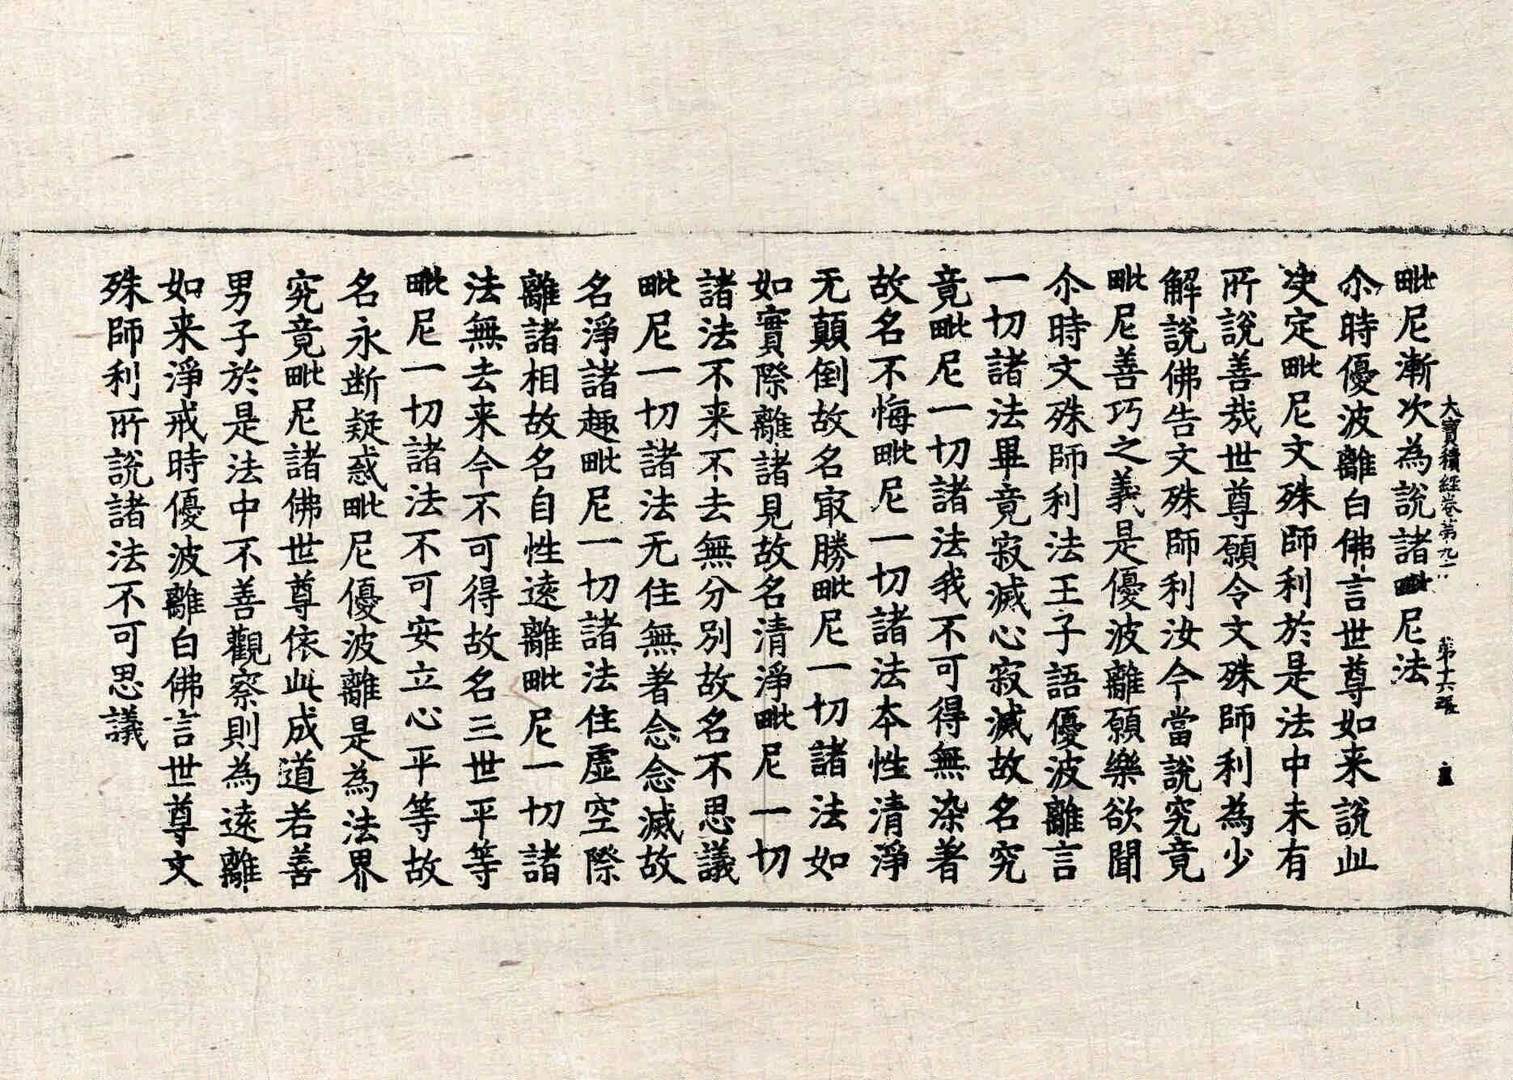 大寶積經卷第九十 第十六張
毗尼漸次為説諸毗尼法
尒時優波離白佛言世尊如来説此
决定毗尼文殊師利於是法中未有
所説善哉世尊願令文殊師利為少
解説佛告文殊師利汝今當説究竟
毗尼善巧之義是優波離願樂欲聞
尒時文殊師利法王子語優波離言
一切諸法畢竟寂滅心寂滅故名究
竟毗尼一切諸法我不可得無染著
故名不悔毗尼一切諸法本性清淨
无顛倒故名㝡勝毗尼一切諸法如
如實際離諸見故名清淨毗尼一切
諸法不来不去無分別故名不思議
毗尼一切諸法无住無著念念滅故
名淨諸趣毗尼一切諸法住虛空際
離諸相故名自性遠離毗尼一切諸
法無去来今不可得故名三世平等
毗尼一切諸法不可安立心平等故
名永断疑惑毗尼優波離是為法界
究竟毗尼諸佛世尊依此成道若善
男子於是法中不善觀察則為遠離
如来淨戒時優波離白佛言世尊文
殊師利所説諸法不可思議